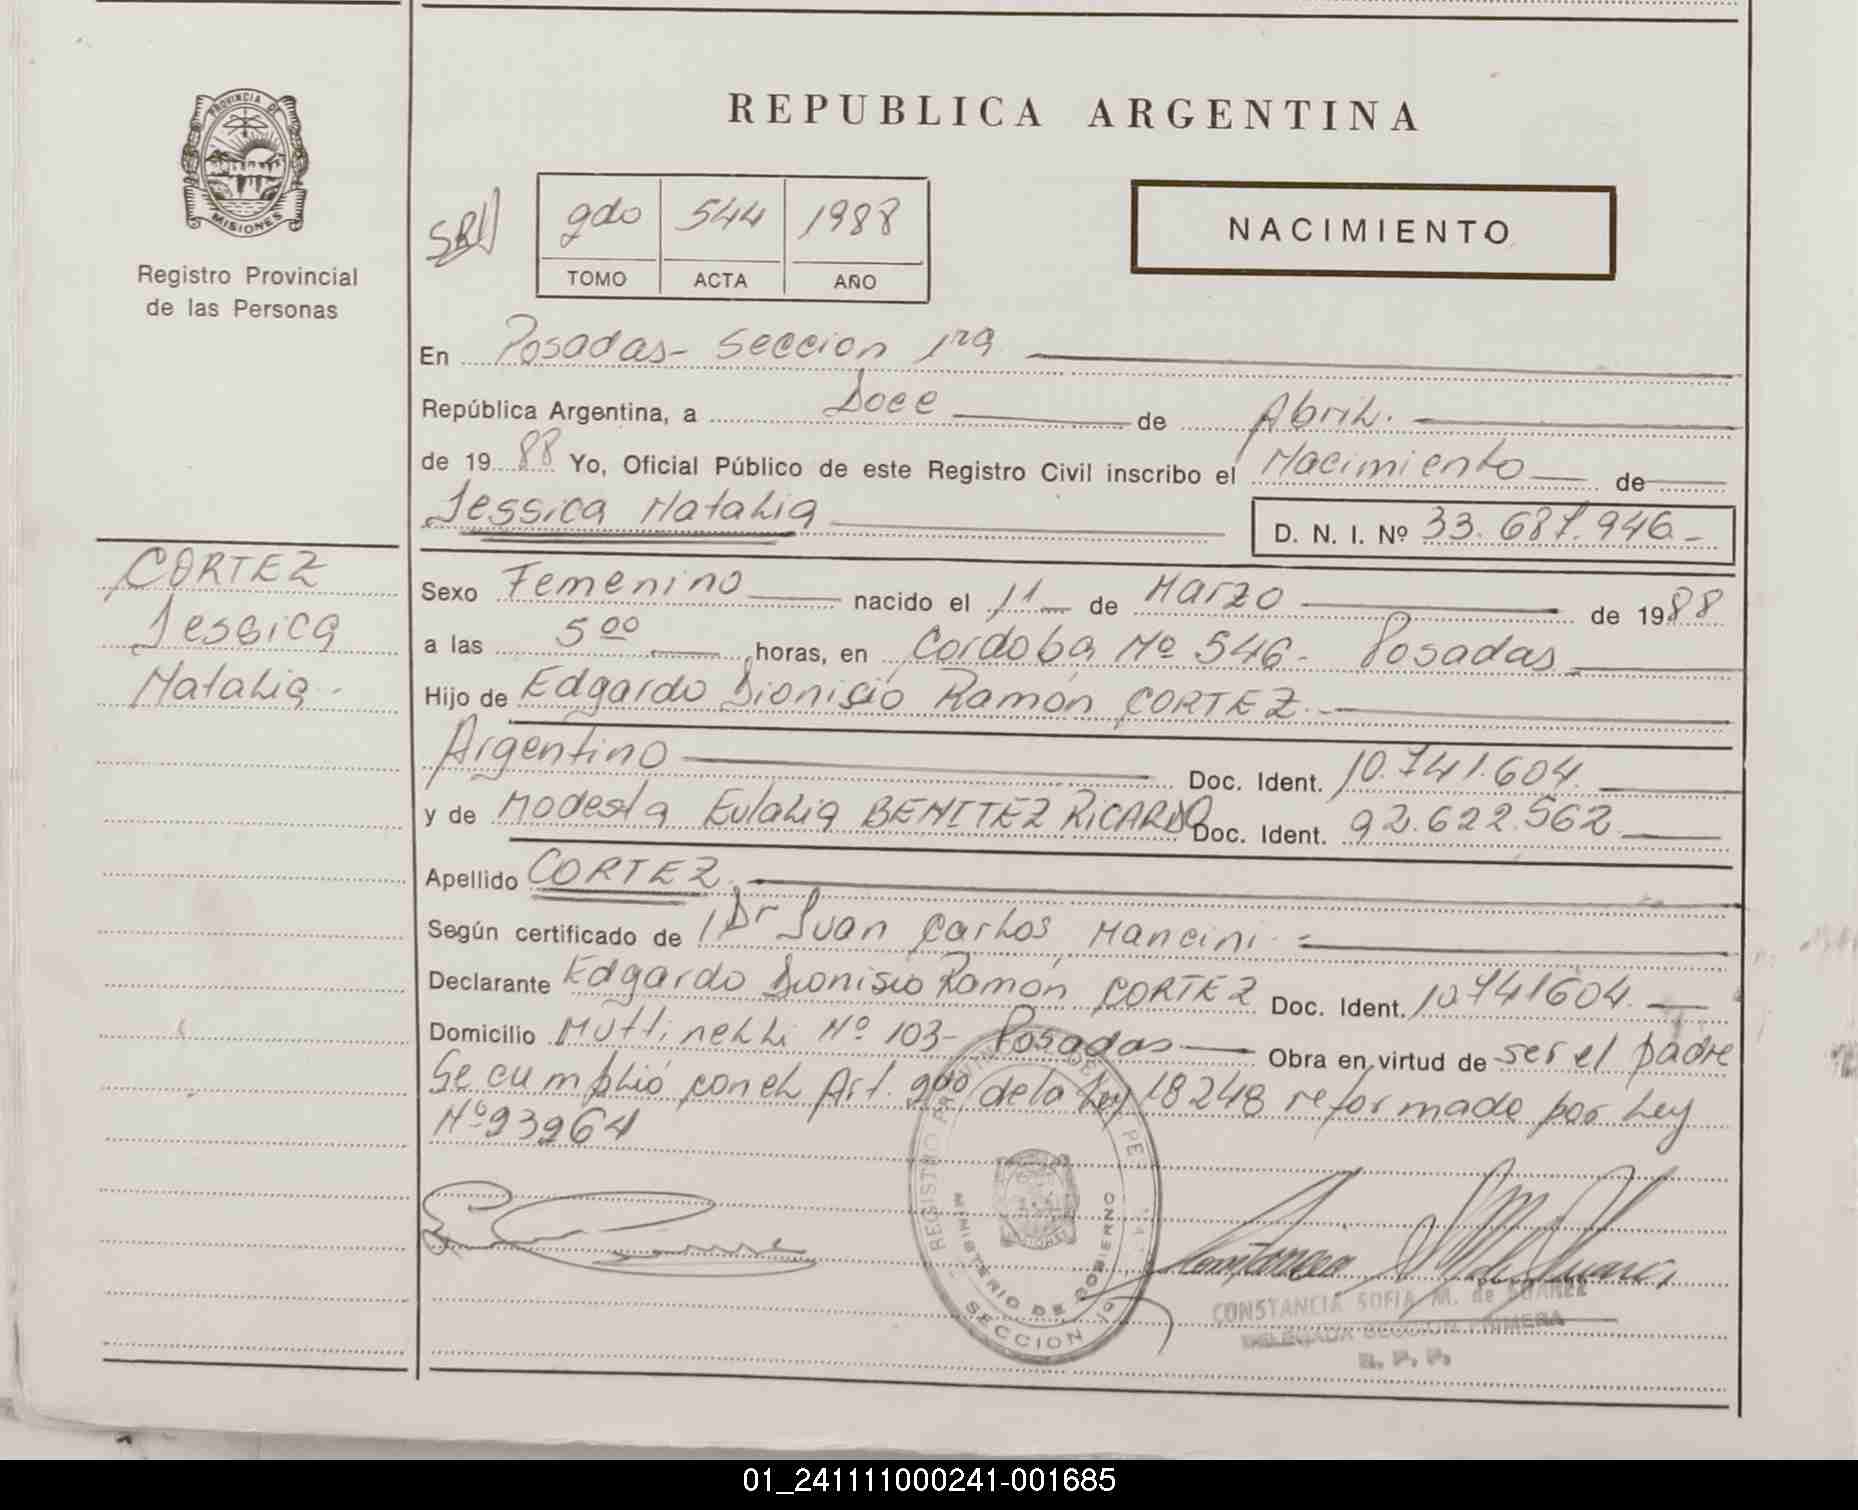 REPUBLICA ARGENTINA
PROVINCIA DE
MISIONES
Registro Provincial
de las Personas
2do 544 1988
TOMO ACTA AÑO
NACIMIENTO
En Posadas- Seccion 1ra
República Argentina, a Doce de Abril.
de 1988 Yo, Oficial Público de este Registro Civil inscribo el Nacimiento de
Jessica Natalia
D. N. I. Nº 33.687.946.-
CORTEZ
Jessica
Natalia.-
Sexo Femenino nacido el 11 de Marzo de 1988
a las 5 00 horas, en Cordoba Nº 546- Posadas
Hijo de Edgardo Dionisio Ramón CORTEZ.-
Argentino Doc. Ident. 10.741.604.
y de Modesta Eulalia BENITEZ RICARDO Doc. Ident. 92.622.562
Apellido CORTEZ.
Según certificado de Dr Juan Carlos Mancini.=
Declarante Edgardo Dionisio Ramón CORTEZ Doc. Ident. 10.741604.
Domicilio Muttinelli Nº 103- Posadas Obra en virtud de ser el padre
Se cumplió con el Art. 2do de la Ley 18248 reformado por Ley
Nº23264
REGISTRO PROVINCIAL DE LAS PERSONAS
MINISTERIO DE GOBIERNO
SECCION 1a
CONSTANCIA SOFIA M. de SUAREZ
DELEGADA SECCION PRIMERA
R. P. P.
01_241111000241-001685